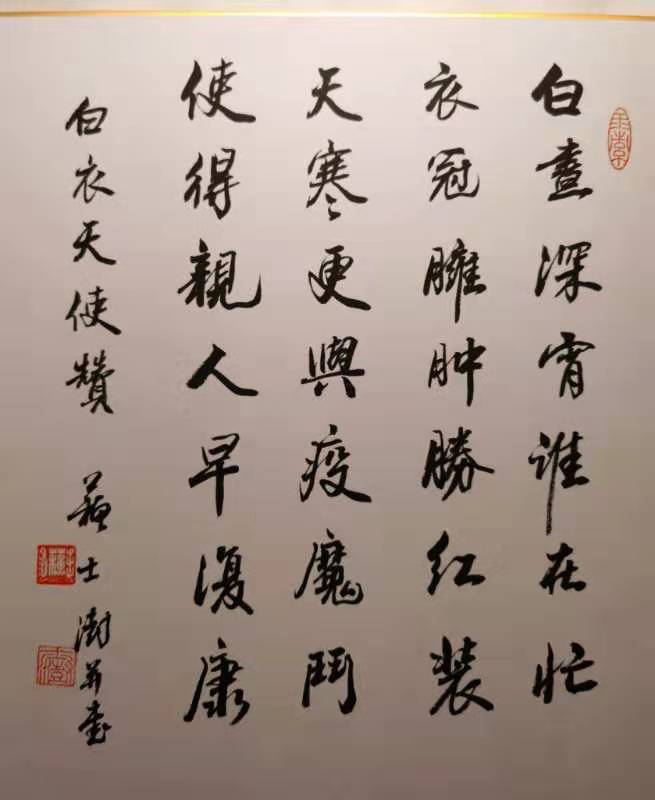 白晝深宵谁在忙
衣冠臃肿勝红装
天寒更與疫魔鬥
使得親人早復康
白衣天使贊 蘇士澍并書